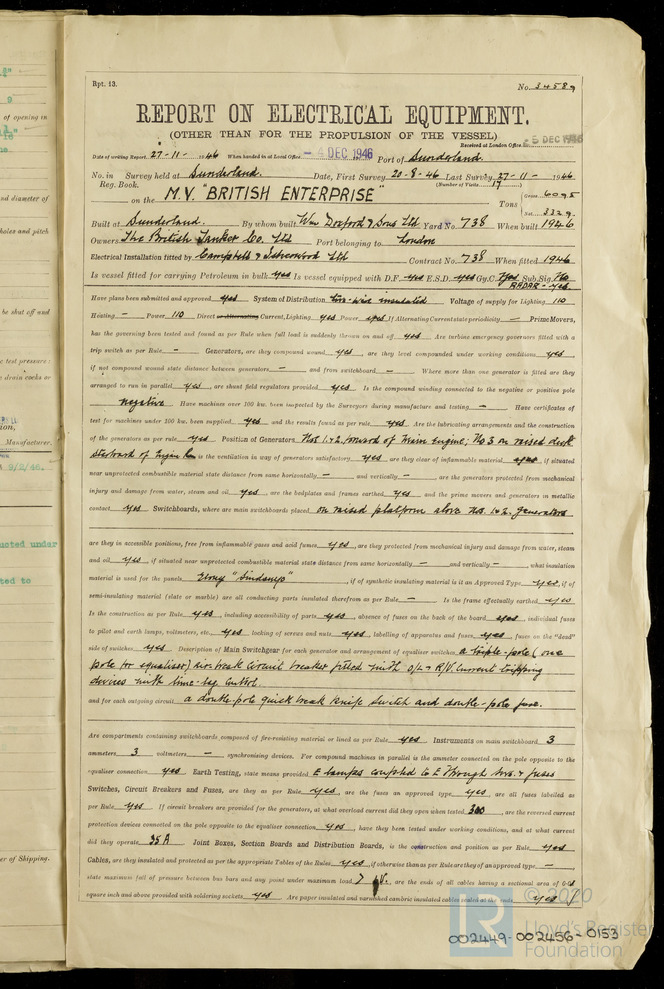 Rpt. 13.
No. 34589
REPORT ON ELECTRICAL EQUIPMENT.
(OTHER THAN FOR THE PROPULSION OF THE VESSEL)
Received at London Office 5 DEC 1946
Date of writing Report 27-11-1946 When handed in at Local Office 4 DEC 1946 Port of Sunderland.
No. in Survey held at Sunderland. Date, First Survey 20-8-46 Last Survey 27-11-1946
Reg. Book. (Number of Visits 17)
on the M.V. "BRITISH ENTERPRISE" Tons Gross 6095
Net 3229.
Built at Sunderland. By whom built Wm Doxford & Sons Ltd Yard No. 738 When built 1946
Owners The British Tanker Co. Ltd Port belonging to London
Electrical Installation fitted by Campbell & Isherwood Ltd Contract No. 738 When fitted 1946
Is vessel fitted for carrying Petroleum in bulk yes Is vessel equipped with D.F. yes E.S.D. yes Gy.C. yes Sub.Sig. No
RADAR - yes.
Have plans been submitted and approved yes System of Distribution two-wire insulated Voltage of supply for Lighting 110
Heating — Power 110 Direct or Alternating Current, Lighting yes Power yes If Alternating Current state periodicity — Prime Movers,
has the governing been tested and found as per Rule when full load is suddenly thrown on and off yes Are turbine emergency governors fitted with a
trip switch as per Rule — Generators, are they compound wound yes, are they level compounded under working conditions yes,
if not compound wound state distance between generators — and from switchboard — Where more than one generator is fitted are they
arranged to run in parallel yes, are shunt field regulators provided yes Is the compound winding connected to the negative or positive pole
negative Have machines over 100 kw. been inspected by the Surveyors during manufacture and testing — Have certificates of
test for machines under 100 kw. been supplied yes and the results found as per rule yes Are the lubricating arrangements and the construction
of the generators as per rule yes Position of Generators Nos 1 & 2 forward of main engine; No 3 on raised deck
starboard of engine is the ventilation in way of generators satisfactory yes are they clear of inflammable material yes if situated
near unprotected combustible material state distance from same horizontally — and vertically — are the generators protected from mechanical
injury and damage from water, steam and oil yes, are the bedplates and frames earthed yes and the prime movers and generators in metallic
contact yes Switchboards, where are main switchboards placed on raised platform above Nos. 1 & 2. generators
are they in accessible positions, free from inflammable gases and acid fumes yes, are they protected from mechanical injury and damage from water, steam
and oil yes if situated near unprotected combustible material state distance from same horizontally — and vertically — what insulation
material is used for the panels "Sindanyo", if of synthetic insulating material is it an Approved Type yes, if of
semi-insulating material (slate or marble) are all conducting parts insulated therefrom as per Rule — Is the frame effectually earthed yes
Is the construction as per Rule yes, including accessibility of parts yes, absence of fuses on the back of the board yes, individual fuses
to pilot and earth lamps, voltmeters, etc. yes locking of screws and nuts yes, labelling of apparatus and fuses yes, fuses on the "dead"
side of switches yes Description of Main Switchgear for each generator and arrangement of equaliser switches a triple-pole (one
pole for equaliser) air-break circuit breaker fitted with O/L & R/V. Current tripping
devices with time-lag control.
and for each outgoing circuit a double-pole quick break knife switch and double-pole fuse.
Are compartments containing switchboards composed of fire-resisting material or lined as per Rule yes Instruments on main switchboard 3
ammeters 3 voltmeters — synchronising devices. For compound machines in parallel is the ammeter connected to the pole opposite to the
equaliser connection yes Earth Testing, state means provided E lamps coupled to E through sws. & fuses
Switches, Circuit Breakers and Fuses, are they as per Rule yes, are the fuses an approved type yes, are all fuses labelled as
per Rule yes If circuit breakers are provided for the generators, at what overload current did they open when tested 300, are the reversed current
protection devices connected on the pole opposite to the equaliser connection yes, have they been tested under working conditions, and at what current
did they operate 35 A Joint Boxes, Section Boards and Distribution Boards, is the construction and position as per Rule yes
Cables, are they insulated and protected as per the appropriate Tables of the Rules yes if otherwise than as per Rule are they of an approved type —
state maximum fall of pressure between bus bars and any point under maximum load 7 V. are the ends of all cables having a sectional area of
square inch and above provided with soldering sockets yes Are paper insulated and varnished cambric insulated cables sealed at the ends yes
© 2020
Lloyd's Register
Foundation
LR
002449-002456-0153
of opening in
nd diameter of
holes and pitch
be shut off and
te test pressure:
e drain cocks or
Manufacturer.
9/2/46.
ucted under
ted to
er of Shipping.